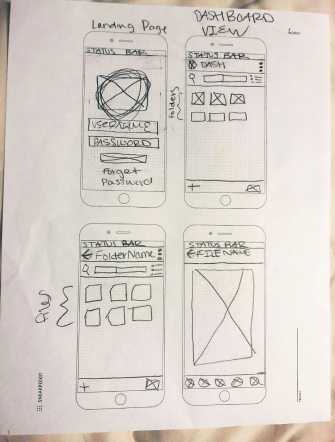 Landing Page
STATUS BAR
USERNAME
PASSWORD
Forget
Password
DASHBOARD
VIEW
STATUS BAR
DASH
Folders
STATUS BAR
FolderName
Files
STATUS BAR
FILE NAME
SNEAKPEEKIT